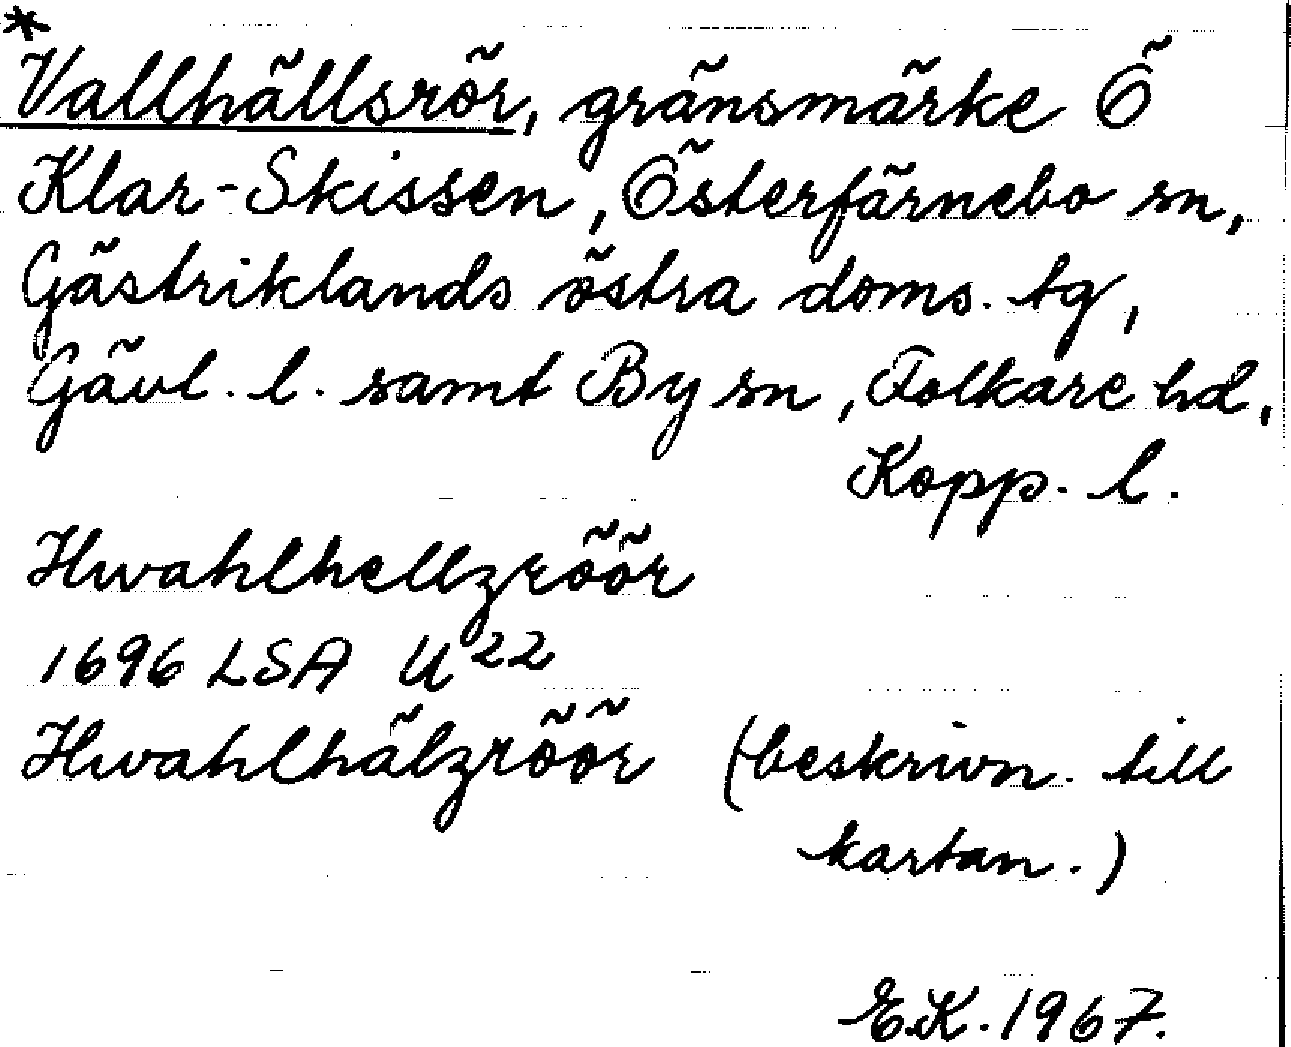 *
Vallhällsrör, gränsmärke Ö
Klar-Skissen, Österfärnebo sn,
Gästriklands östra doms. tg,
Gävl. l. samt By sn, Folkare hd,
Kopp. l.
Hwahlhellzröör
1696 LSA U 22
Hwahlhälzröör (beskrivn. till
kartan.)
E.K. 1967.